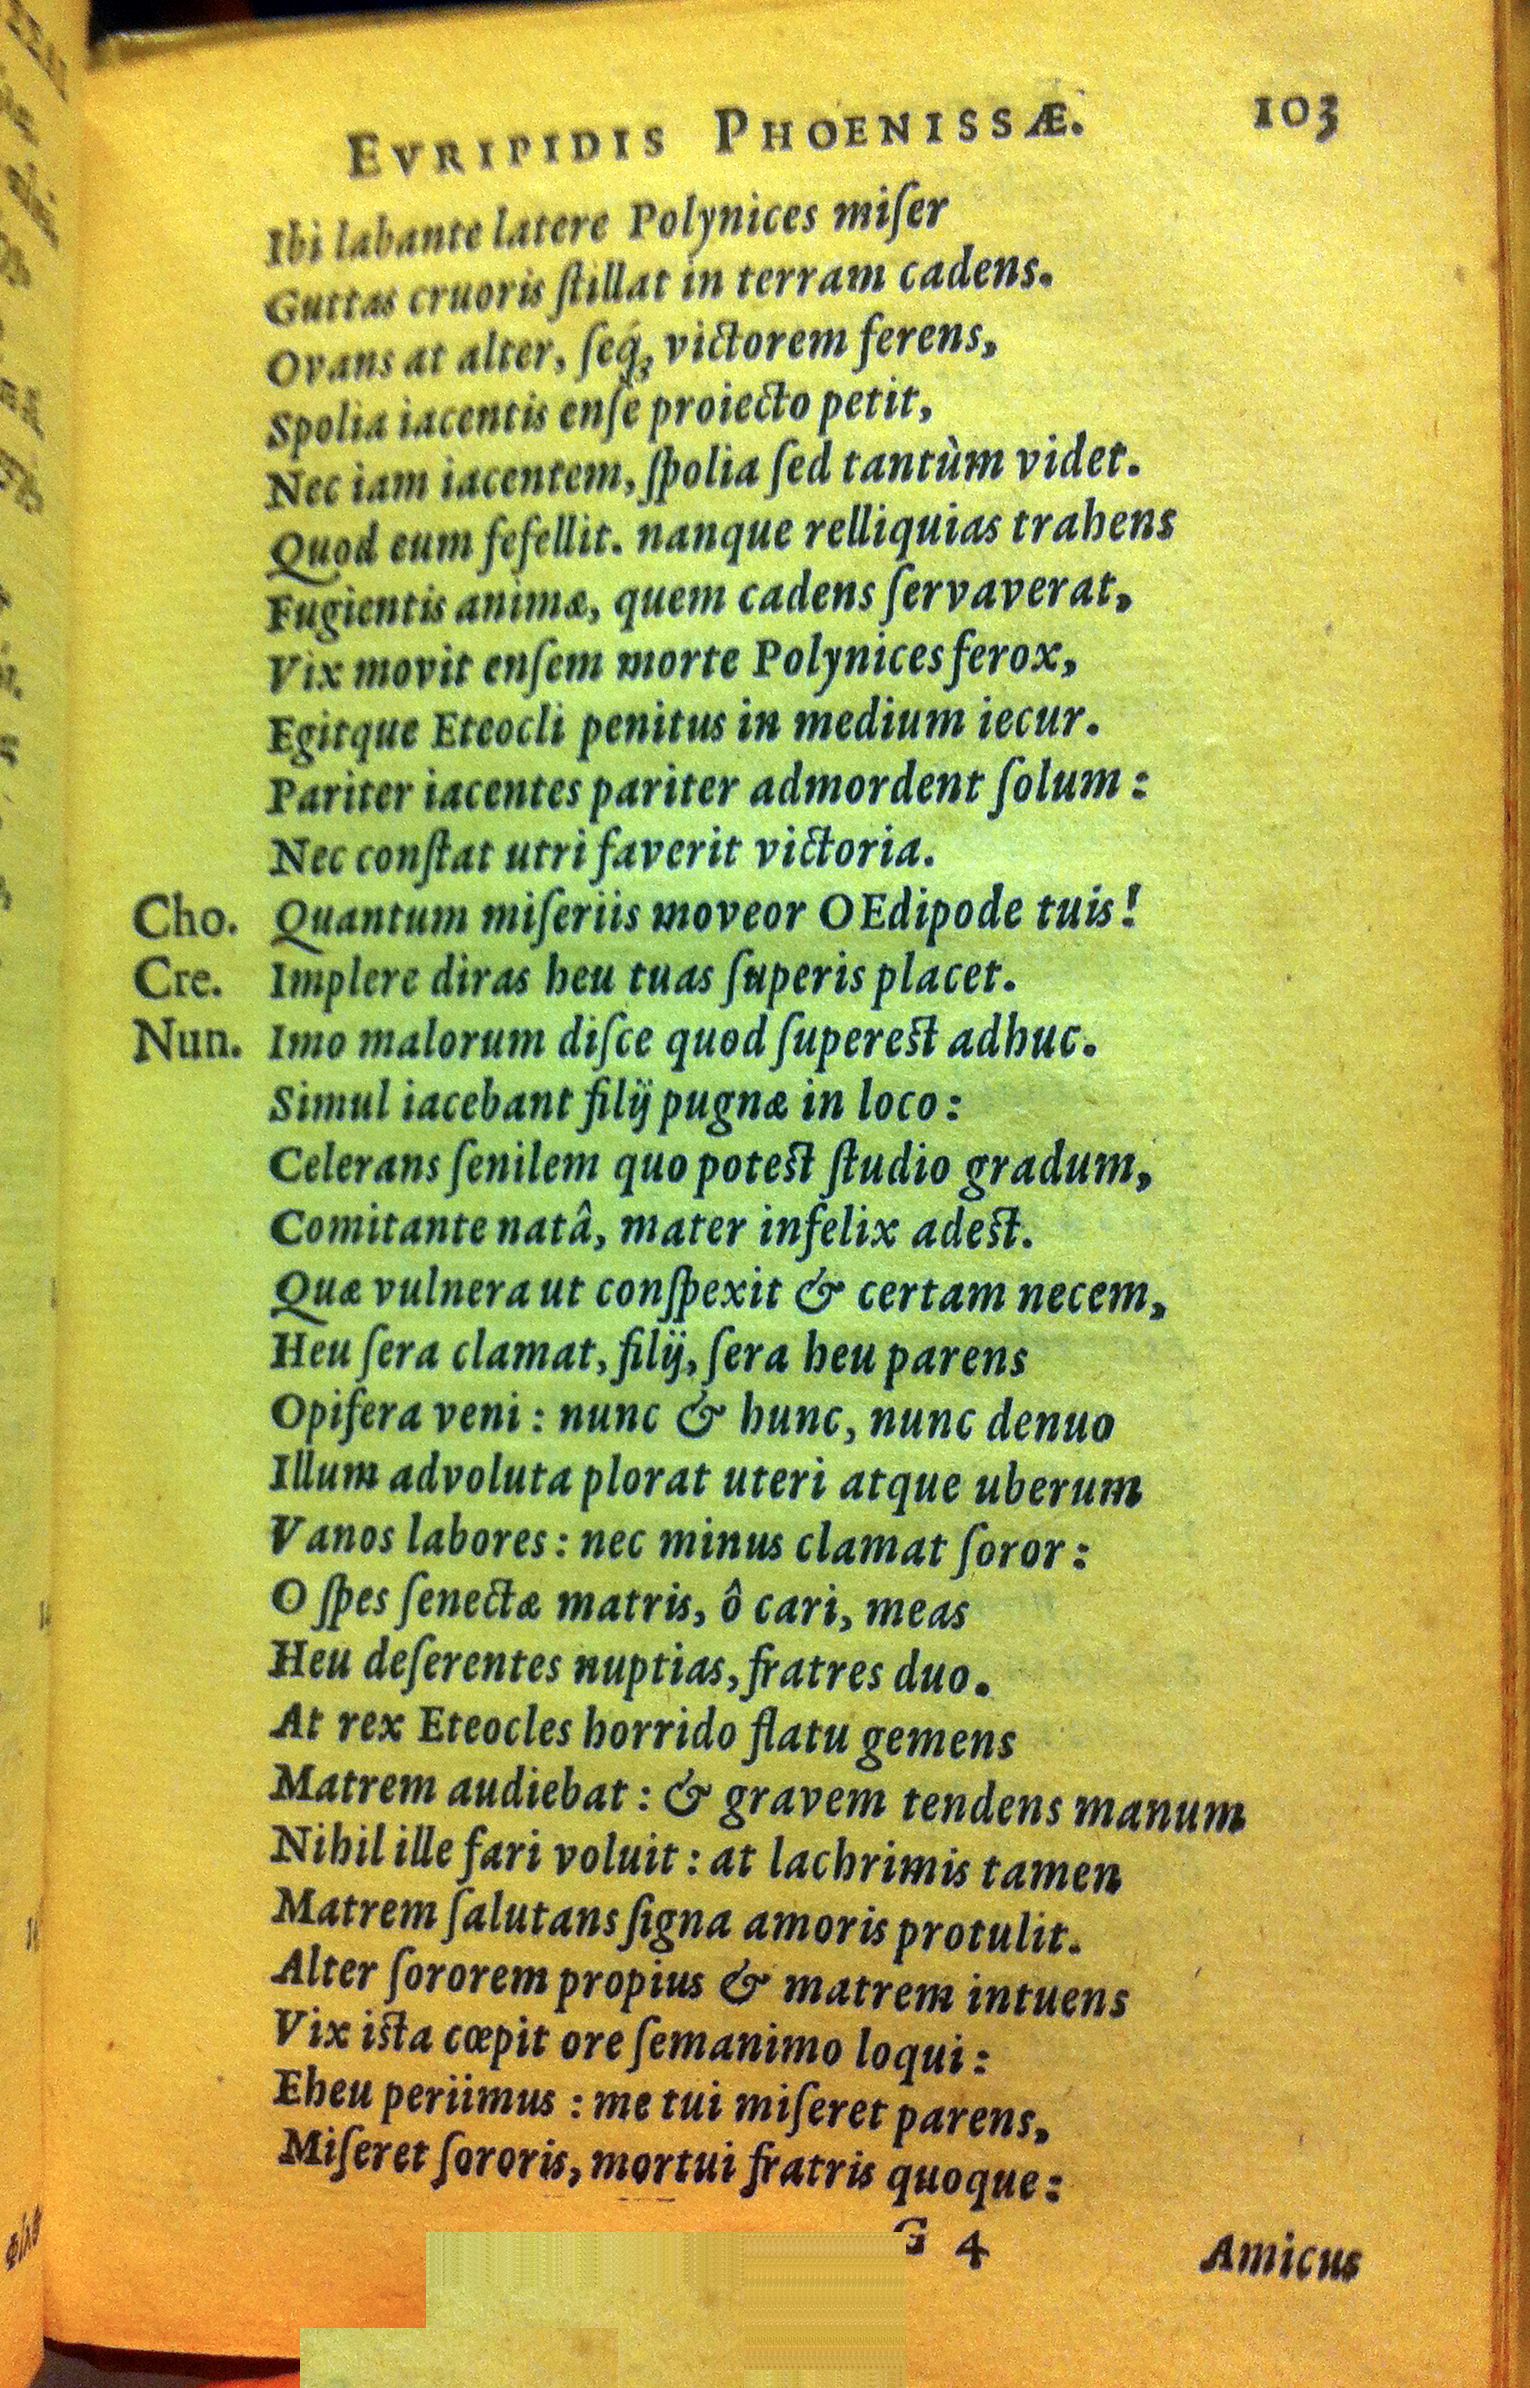 EVRIPIDIS PHOENISSÆ. 103
Ibi labante latere Polynices miſer
Guttas cruoris ſtillat in terram cadens.
Ovans at alter, ſeq́; victorem ferens,
Spolia iacentis enſe proiecto petit,
Nec iam iacentem, ſpolia ſed tantùm videt.
Quod eum fefellit. nanque relliquias trahens
Fugientis animæ, quem cadens ſervaverat,
Vix movit enſem morte Polynices ferox,
Egitque Eteocli penitus in medium iecur.
Pariter iacentes pariter admordent ſolum:
Nec conſtat utri faverit victoria.
Cho. Quantum miſeriis moveor OEdipode tuis!
Cre. Implere diras heu tuas ſuperis placet.
Nun. Imo malorum diſce quod ſupereſt adhuc.
Simul iacebant filij pugnæ in loco:
Celerans ſenilem quo poteſt ſtudio gradum,
Comitante natâ, mater infelix adeſt.
Quæ vulnera ut conſpexit & certam necem,
Heu ſera clamat, filij, ſera heu parens
Opifera veni: nunc & hunc, nunc denuo
Illum advoluta plorat uteri atque uberum
Vanos labores: nec minus clamat ſoror:
O ſpes ſenectæ matris, ô cari, meas
Heu deſerentes nuptias, fratres duo.
At rex Eteocles horrido flatu gemens
Matrem audiebat: & gravem tendens manum
Nihil ille fari voluit: at lachrimis tamen
Matrem ſalutans ſigna amoris protulit.
Alter ſororem propius & matrem intuens
Vix iſta cœpit ore ſemanimo loqui:
Eheu periimus: me tui miſeret parens,
Miſeret ſororis, mortui fratris quoque:
G 4 Amicus